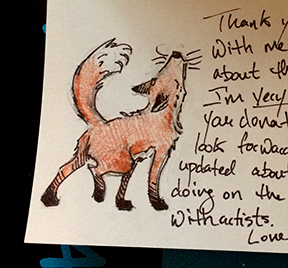 Thank y
with me
about th
I'm very
you donat
look forward
updated about
doing on the
with artists.
Love